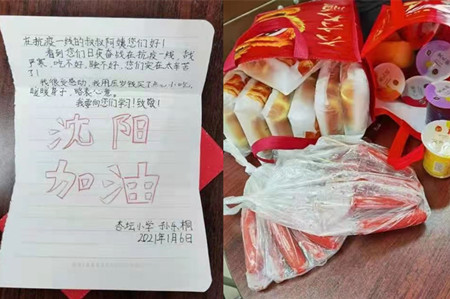 在抗疫一线的叔叔阿姨您们好！
看到您们日夜奋战在抗疫一线，战
严寒、吃不好、睡不好，您们实在太辛苦
了！
我很受感动，我用压岁钱买了
暖暖身子，略表心意。
我要向您们学习！致敬！
沈阳
加油
杏坛小学 孙乐桐
2021年1月6日